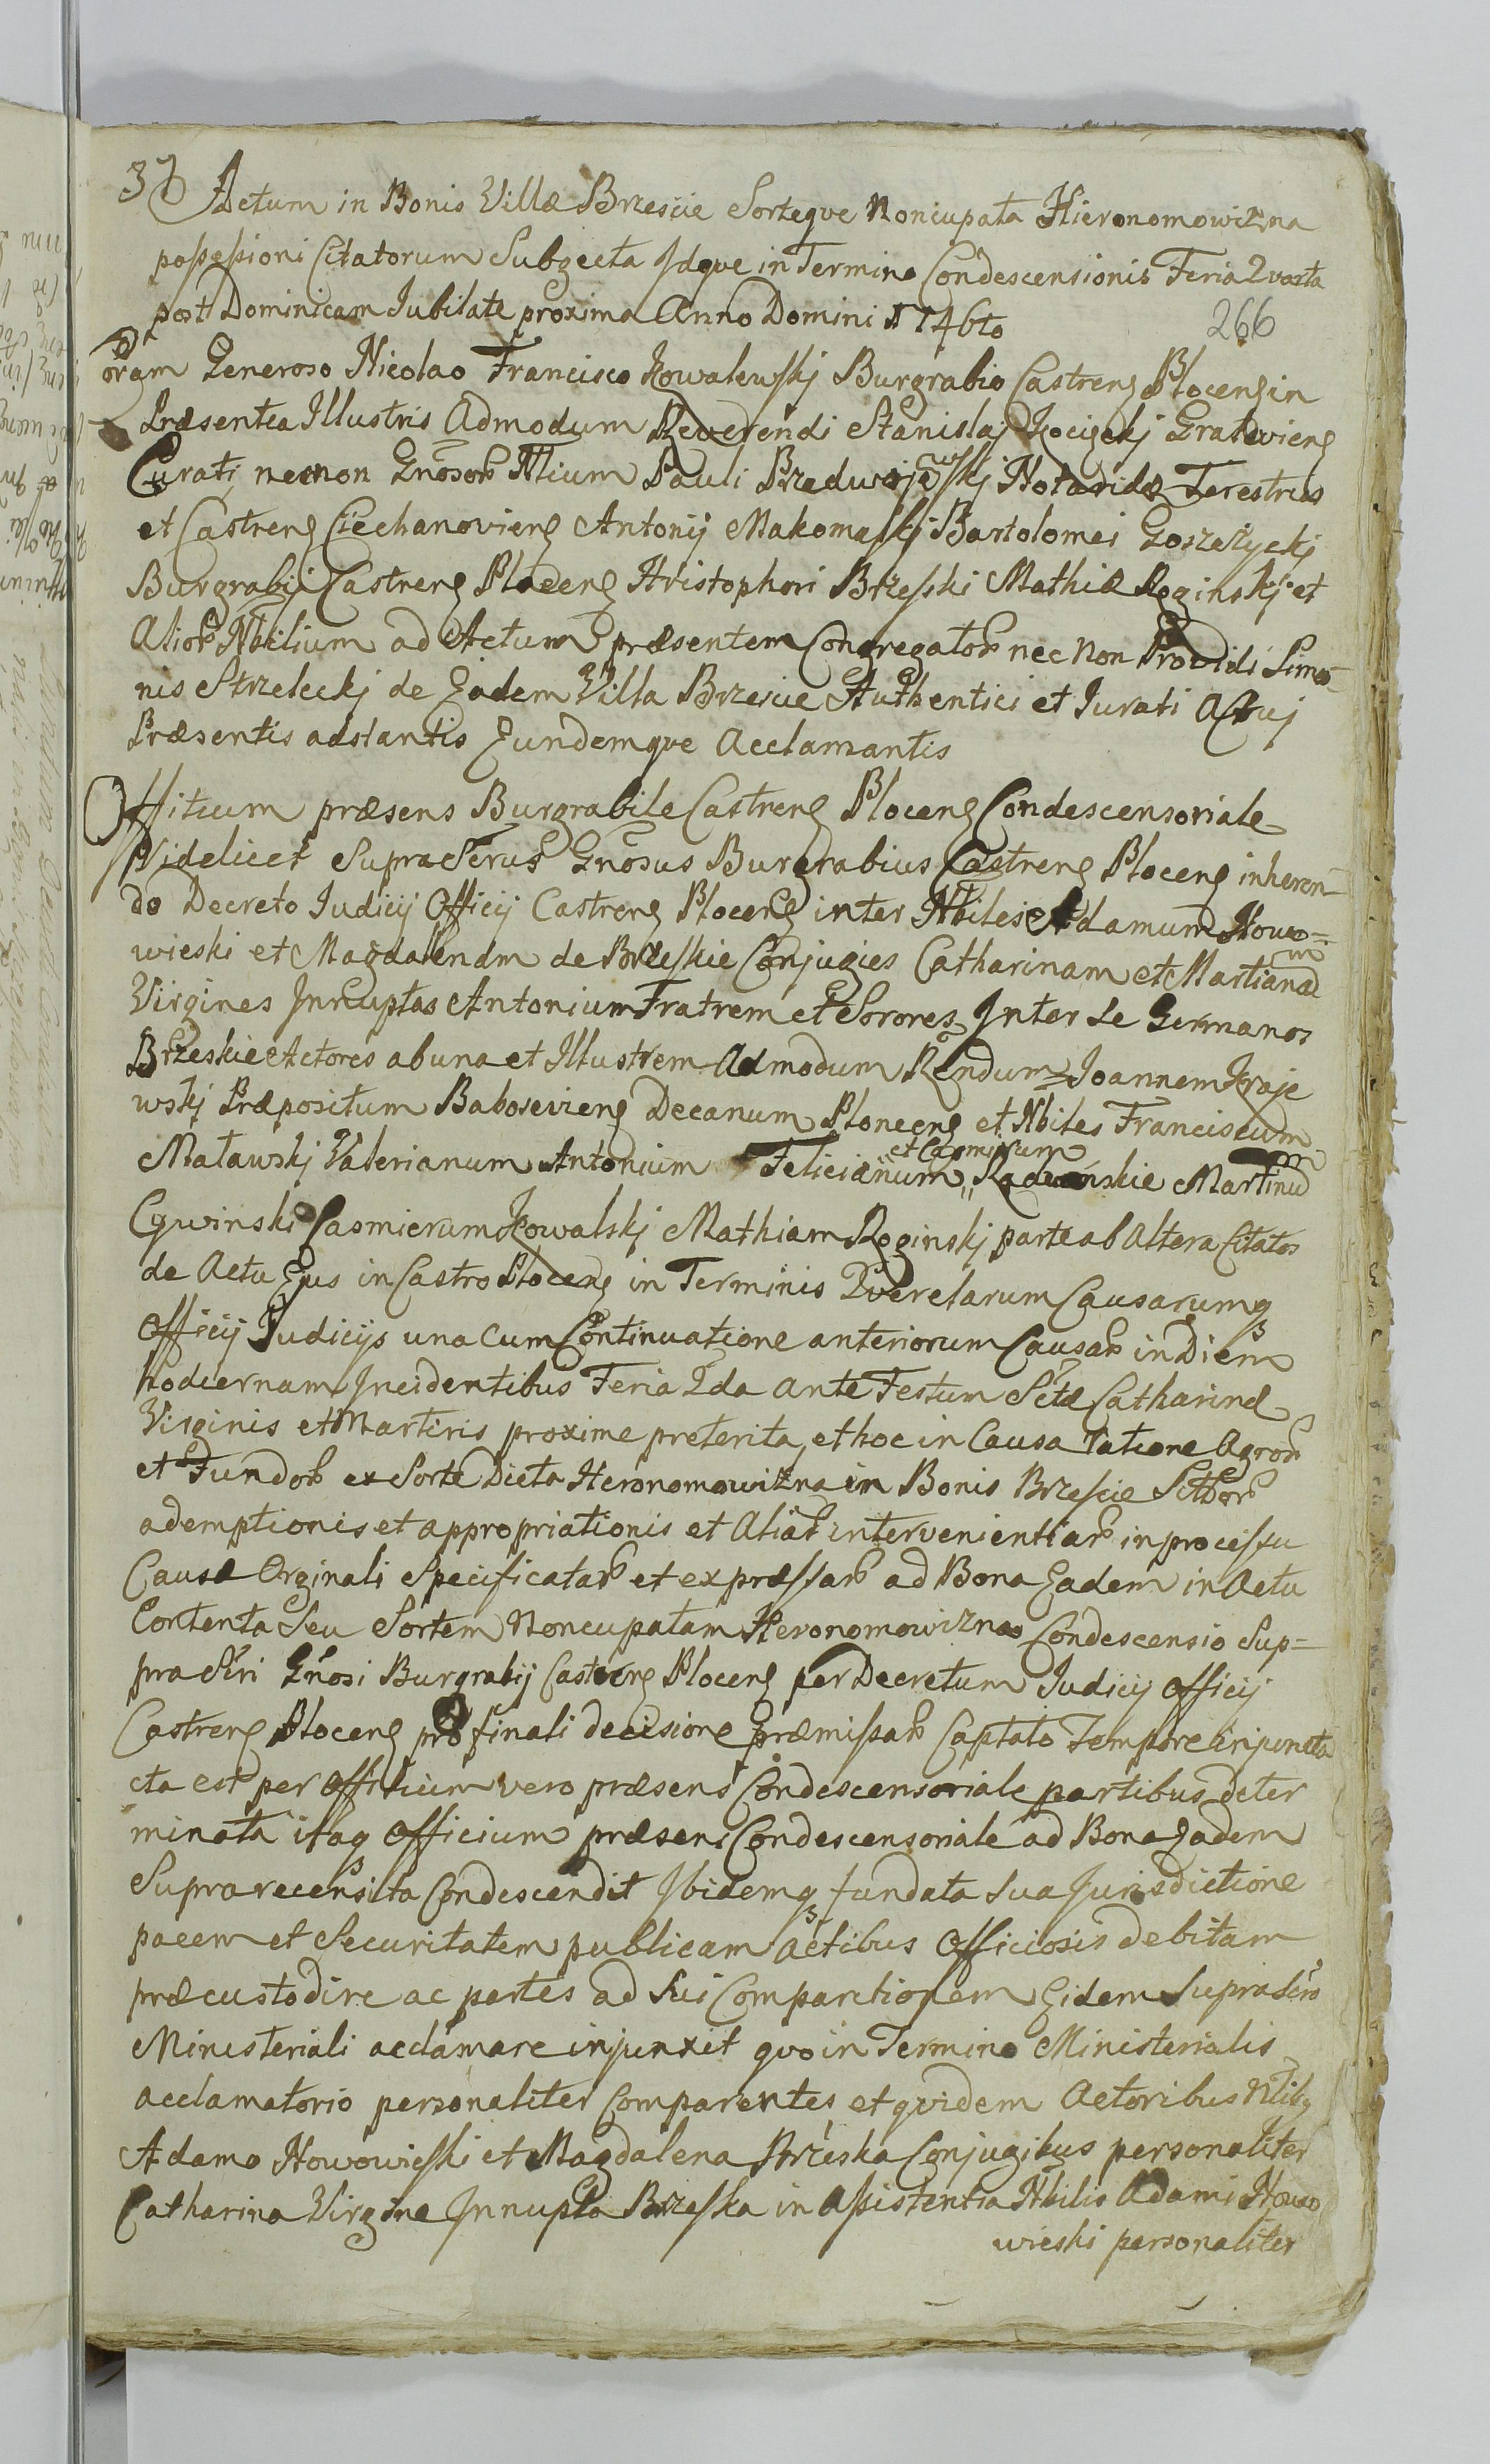 37 Actum in Bonis Villæ Brzescie Sorteqve Noncupata Hieronomowizna
possessioni Citatorum Subjecta Idqve in Termino Condescensionis Feria Qvarta
post Dominicam Iubilate proxima Anno Domini 1746to
266
Coram Generoso Nicolao Francisco Kowalewskj Burgrabio Castreng Ploceng in
Præsentia Illustris Admodum Reverendi Stanislaj Gratovieng
Curati necnon Gnosor Nlium Pauli Notarÿ Terestris
et Castreng Ciechanovieng Antonij Makomaskj Bartolomei Goszczyckj
Burgrabij Castreng Ploceng Hristophori Brzeski Mathiæ Roginskj et
Alior Nbilium ad Actum præsentem Congregator nec Non Providi Simo-
nis Strzeleckj de Eadem Villa Brzescie Authentici et Iurati Actuj
Præsentis adstantis Eundemqve Acclamantis
Offitium præsens Burgrabile Castreng Ploceng Condescensoriale
Videlicet Suprascrus Gnosus Burgrabius Castreng Ploceng inheren-
do Decreto Iudicij Officij Castreng Ploceng inter Nbiles Adamum Nowo=
wieski et Magdalenam de Brzeskie Conjuges Catharinam et Martianam
Virgines Innuptas Antonium Fratrem et Sorores Inter Se Germanos
Brzeskie Actores ab una et Illustrem Admodum Rendum Ioannem Kraje
wskj Præpositum Babosevieng Decanum Plonceng et Nbiles Franciscum
Matawskj Valerianum Antonium Felicianum et Casmirum Radwanskie Martinum
Cywinski Casmierum Kowalskj Mathiam Roginskj parte ab Altera Citatos
de Actu Ejus in Castro Ploceng in Terminis Qverelarum Causarumq
Officij Iudicijs una Cum Continuatione anteriorum Causar in Diem
hodiernam Incidentibus Feria 2da Ante Festum Sctæ Catharinæ
Virginis et Martiris proxime preterita, et hoc in Causa ratione Agror
et Fundor ex Sorte Dicta Heronomowizna in Bonis Brzescie
ademptionis et appropriationis et Aliar intervenientiar in processu
Causæ Orginali Specificatar et expressar ad Bona Eadem in Actu
Contenta Seu Sortem Noncupatam Heronomowizna Condescensio Sup=
pra Scri Gnosi Burgrabij Castreng Ploceng per Decretum Iudicij Officij
Castreng Ploceng pro finali decisione præmissar Captato Tempore injuncta
cta est per Offitium vero præsens Condescensoriale partibus deter
minata itaq Officium præsens Condescensoriale ad Bona Eadem
Supra recensita Condescendit Ibidemq fundata Sua Jurisdictione
pacem et Securitatem publicam actibus Officiosis debitam
præcustodire ac partes ad Sui Comparitionem Eidem Suprascro
Ministeriali acclamare injunxit qvo in Termino Ministerialis
acclamatorio personaliter Comparentes et qvidem Actoribus
Adamo Nowowieski et Magdalena Brzeska Conjugibus personaliter
Catharina Virgine Innupta Brzeska in Assistentia Nbilis Adami Nowo
wieski personaliter